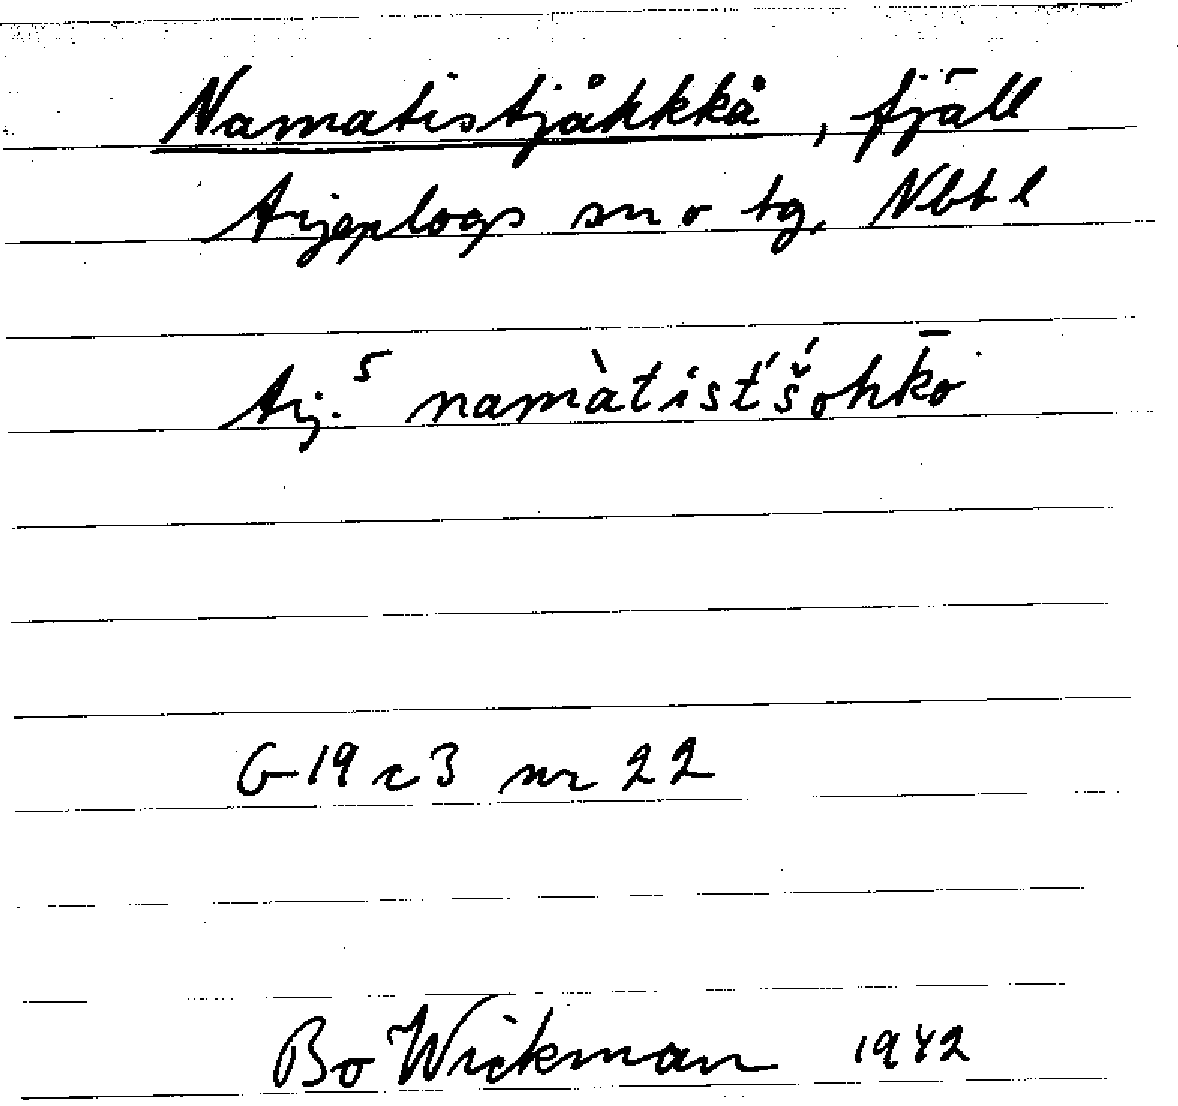 Namatistjåkkkå, fjäll
Arjeplogs sn o tg, Nbt l
Arj.⁵ namàtistʹšʹohkō
G 19 c 3 nr 22
Bo Wickman 1942